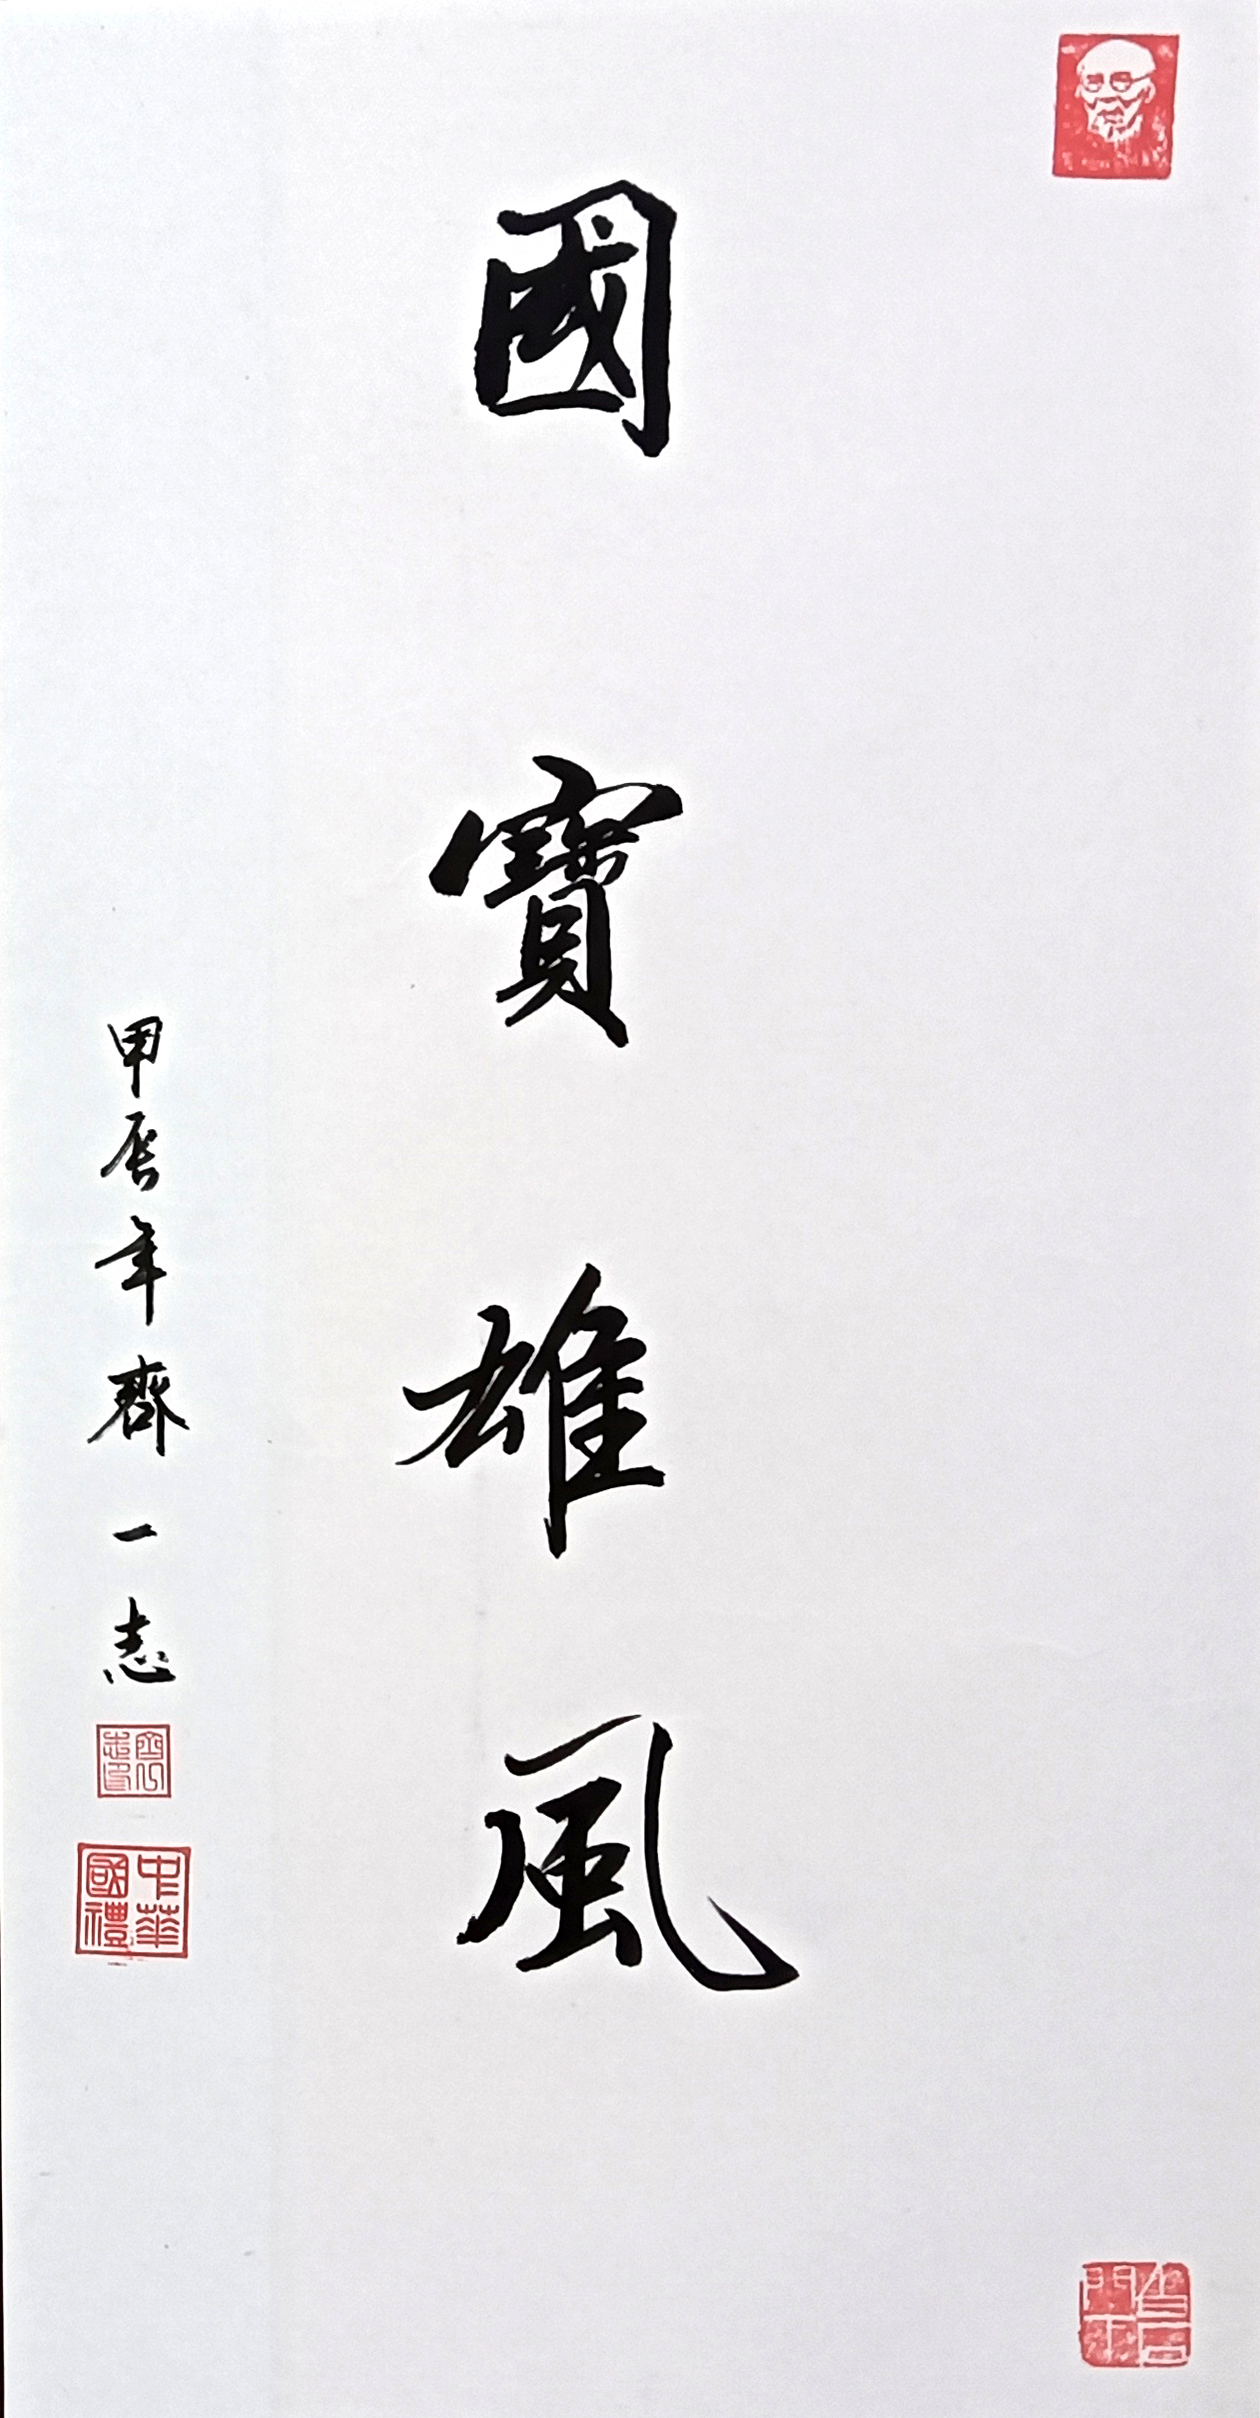 國寶雄風
甲辰年齊一志
中華國禮